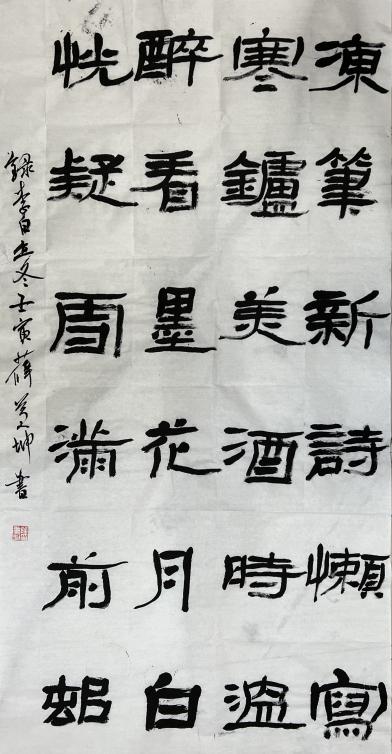 凍筆新詩懶寫
寒鑪美酒時溫
醉看墨花月白
恍疑雪滿前邨
錄李白立冬壬寅薛坤書